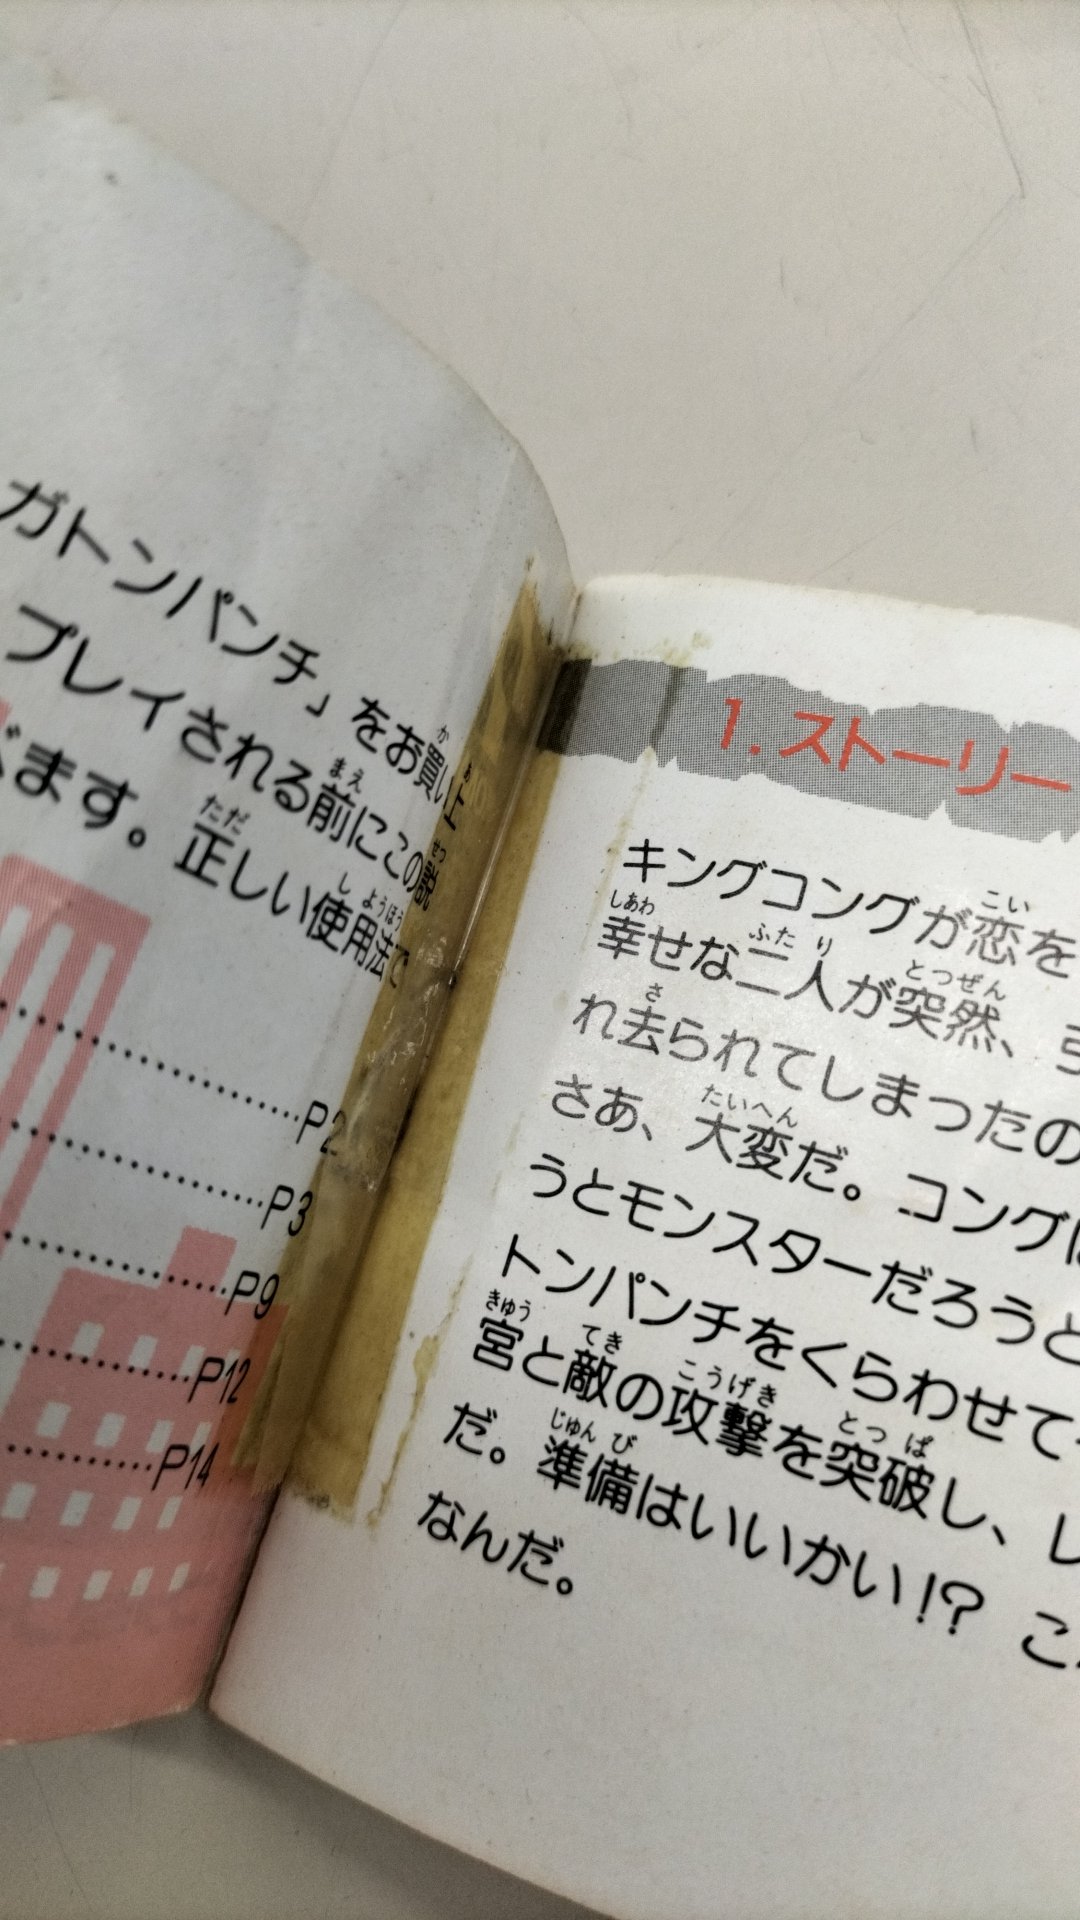 ガトンパンチ」をお買い上
プレイされる前にこの説
ます。正しい使用法で
P2
P3
P9
P12
P14
1. ストーリー
キングコングが恋を
幸せな二人が突然、引
れ去られてしまったの
さあ、大変だ。コングは
うとモンスターだろうと
トンパンチをくらわせて
宮と敵の攻撃を突破し、レ
だ。準備はいいかい!? こ
なんだ。